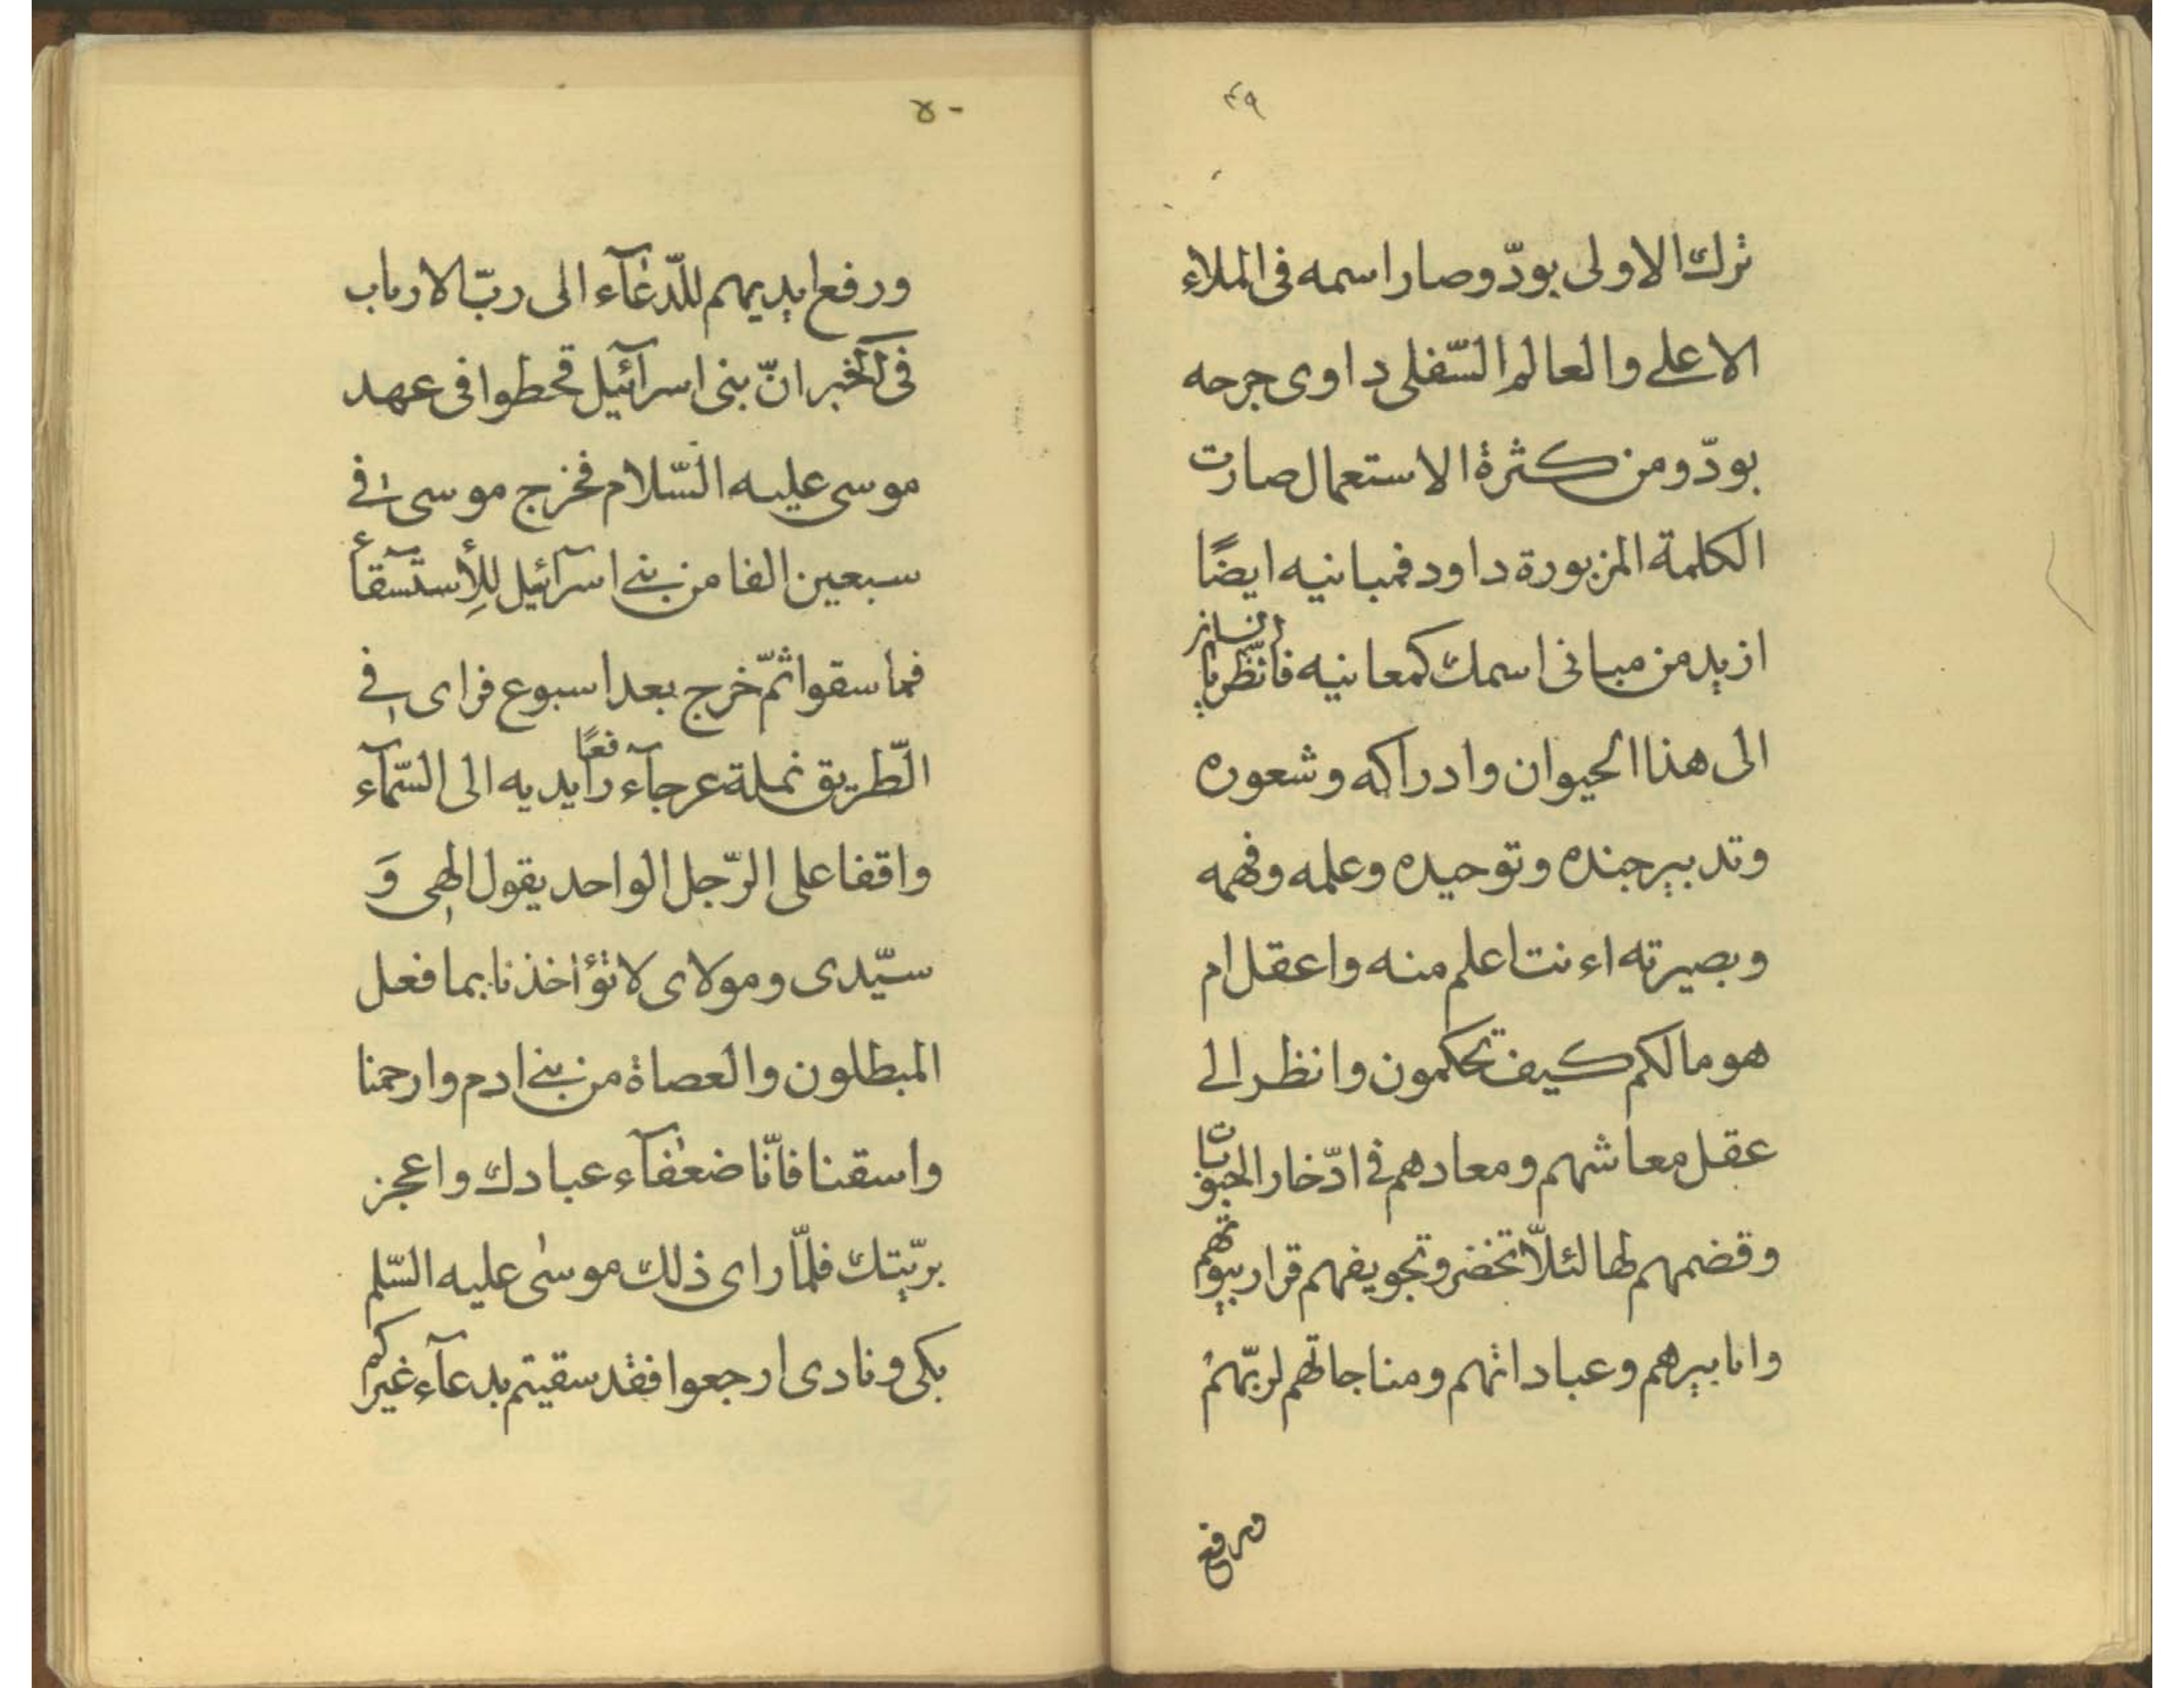 ٤٩
ترك الاولى بودّ وصار اسمه فى الملاء
الاعلى والعالم السّفلى داوى جرحه
بودّ ومن كثرة الاستعمال صارت
الكلمة المزبورة داود فمبانيه ايضًا
ازيد من مبانى اسمك كمعانيه فانظر يا
الى هذا الحيوان وادراكه وشعوره
وتدبير جنده وتوحيده وعلمه وفهمه
وبصيرته اءنت اعلم منه واعقل ام
هو مالكم كيف تحكمون وانظر الى
عقل معاشهم ومعادهم فى ادّخار الحبوبات
وقضمهم لها لئلّا تخضر وتجويفهم قرار بيوتهم
وانابيرهم وعباداتهم ومناجاتهم لربّهم
ورفع
٥٠
ورفع ايديهم للدّعآء الى ربّ الارباب
فى الخبر انّ بنى اسرآئيل قحطوا فى عهد
موسى عليه السّلام فخرج موسى فى
سبعين الفا من بنى اسرآئيل للإستسقآء
فما سقوا ثمّ خرج بعد اسبوع فراى فى
الطّريق نملة عرجآء رافعًا يديه الى السّمآء
واقفا على الرّجل الواحد يقول الهى وَ
سيّدى ومولاى لا تؤاخذنا بما فعل
المبطلون والعصاة من بنى ادم وارحمنا
واسقنا فانّا ضعفآء عبادك واعجز
بريّتك فلمّا راى ذلك موسى عليه السّلم
بكى ونادى ارجعوا فقد سقيتم بدعآء غيركم